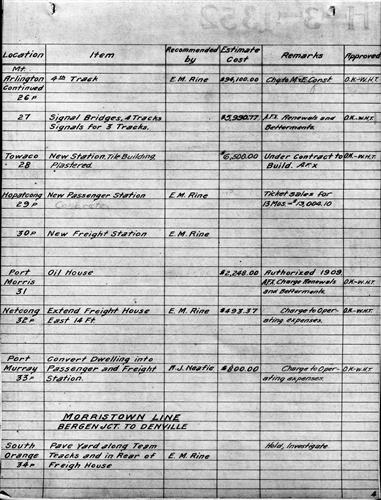 H-3-4,332
Location Item Recommended by Estimate Cost Remarks Approved
Mt. Arlington Continued 26 P 4th Track E.M. Rine $94,100.00 Chgto M.&E. Const O.K.-W.H.T.
27 Signal Bridges, 4 Tracks $5,990.77 AFX Renewals and O.K.-W.H.T.
Signals for 3 Tracks. Betterments.
Towaco New Station, Tile Building $6,500.00 Under Contract to O.K.-W.H.T.
28 Plastered. Build. AFX
Hopatcong New Passenger Station E.M. Rine Ticket sales for
29 P Concrete 13 Mos.-$13,004.10
30 P New Freight Station E.M. Rine
Port Oil House $2,248.00 Authorized 1909.
Morris AFX Charge Renewals O.K-W.H.T.
31 and Betterments.
Netcong Extend Freight House E.M. Rine $493.37 Charge to Oper- O.K-W.H.T.
32 P East 14 Ft. ating expenses.
Port Convert Dwelling into
Murray Passenger and Freight W.J. Neafie $800.00 Charge to Oper- O.K-W.H.T.
33 P Station. ating expenses.
MORRISTOWN LINE
BERGEN JCT. TO DENVILLE
South Pave Yard along Team Hold, Investigate.
Orange Tracks and in Rear of E.M. Rine
34 P Freigh House